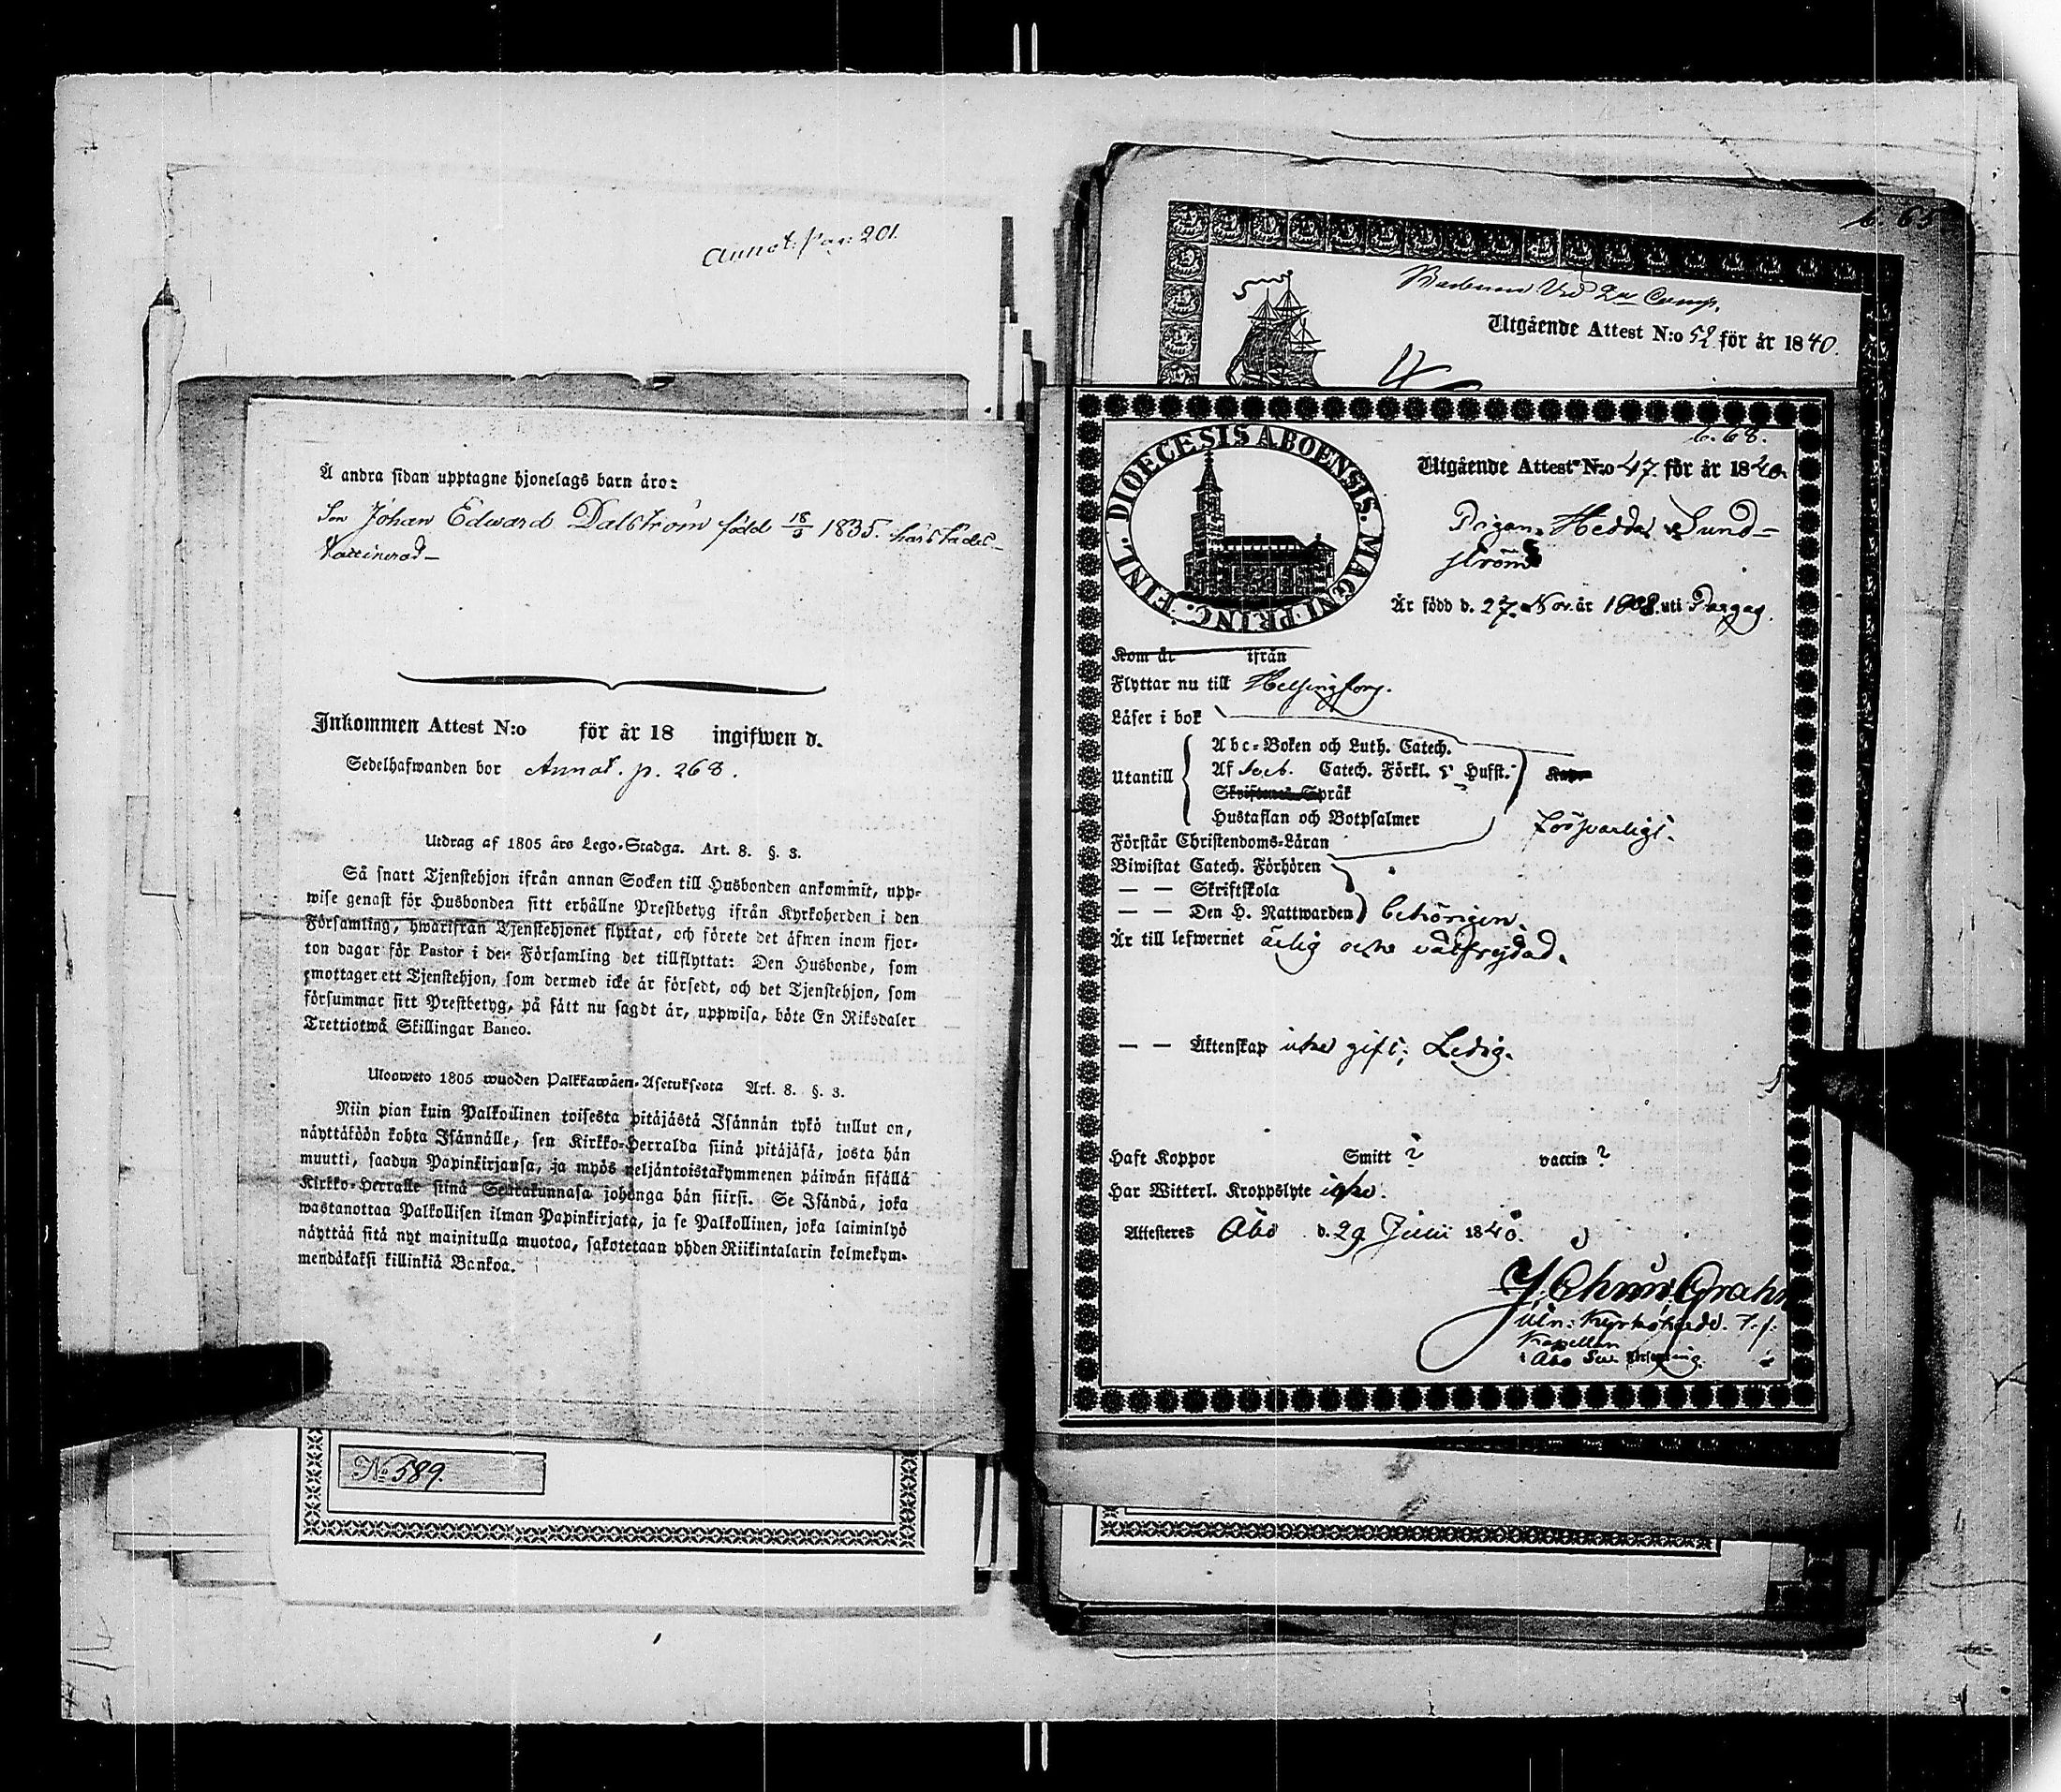 Annot: Pag: 201.
Å andra sidan upptagne hjonelags barn äro:
Son Johan Edward Dalström född 18/5 1835. härstädes
Vaccinerad
Inkommen Attest N:o för år 18 ingifwen d.
Sedelhafwanden bor Annot. p. 268.
Utdrag af 1805 års Lego-Stadga. Art. 8. §. 3.
Så snart Tjenstehjon ifrån annan Socken till Husbonden ankommit, upp-
wise genast för Husbonden sitt erhållne Prestbetyg ifrån Kyrkoherden i den
Församling, hwarifrån Tjenstehjonet flyttat, och förete det äfwen inom fjor-
ton dagar för Pastor i den Församling det tillflyttat: Den Husbonde, som
emottager ett Tjenstehjon, som dermed icke är försedt, och det Tjenstehjon, som
försummar sitt Prestbetyg, på sätt nu sagdt är, uppwisa, böte En Riksdaler
Trettiotwå Skillingar Banco.
Ulosweto 1805 wuoden Palkkawäen-Asetuksesta Art. 8. §. 3.
Niin pian kuin Palkollinen toisesta pitäjästä Isännän tykö tullut on,
näyttäköön kohta Isännälle, sen Kirkko-Herralda siinä pitäjäsä, josta hän
muutti, saadun Papinkirjansa, ja myös neljäntoistakymmenen päiwän sisällä
Kirkko-Herralle siinä Seurakunnasa johonga hän siirsi. Se Isändä, joka
wastanottaa Palkollisen ilman Papinkirjata, ja se Palkollinen, joka laiminlyö
näyttää sitä nyt mainitulla muotoa, sakotetaan yhden Riikintalarin kolmekym-
mendäkaksi killinkiä Bankoa.
No 589.
b. 65
2 Comp.
Utgående Attest N:o 52 för år 1840.
b. 68.
FINL. DIOECESIS ABOENSIS. MAGNI PRINC.
Utgående Attest N:o 47 för år 1840.
Pigan Hedda Sund-
ström
Är född d. 27. Nov. år 1808. uti Pargas.
Kom år ifrån
Flyttar nu till Helsingfors.
Läser i bok
Abc-Boken och Luth. Catech.
Utantill Af Catech. Förkl. 5 Hufst.
Språk
Hustaflan och Botpsalmer
försvarligt.
Förstår Christendoms-Läran
Biwistat Catech. Förhören
— — Skriftskola
— — Den H. Nattwarden behörigen.
Är till lefwernet ärlig och välfrejdad.
— — Äktenskap icke gift; Ledig.
Haft Koppor Smitt ? vaccin ?
Har Witterl. Kroppslyte icke.
Attesteres Åbo d. 29 Junii 1840.
Grahn
Kyrkoherde. T. f.
Kapellan
i Åbo Sw. Församling.